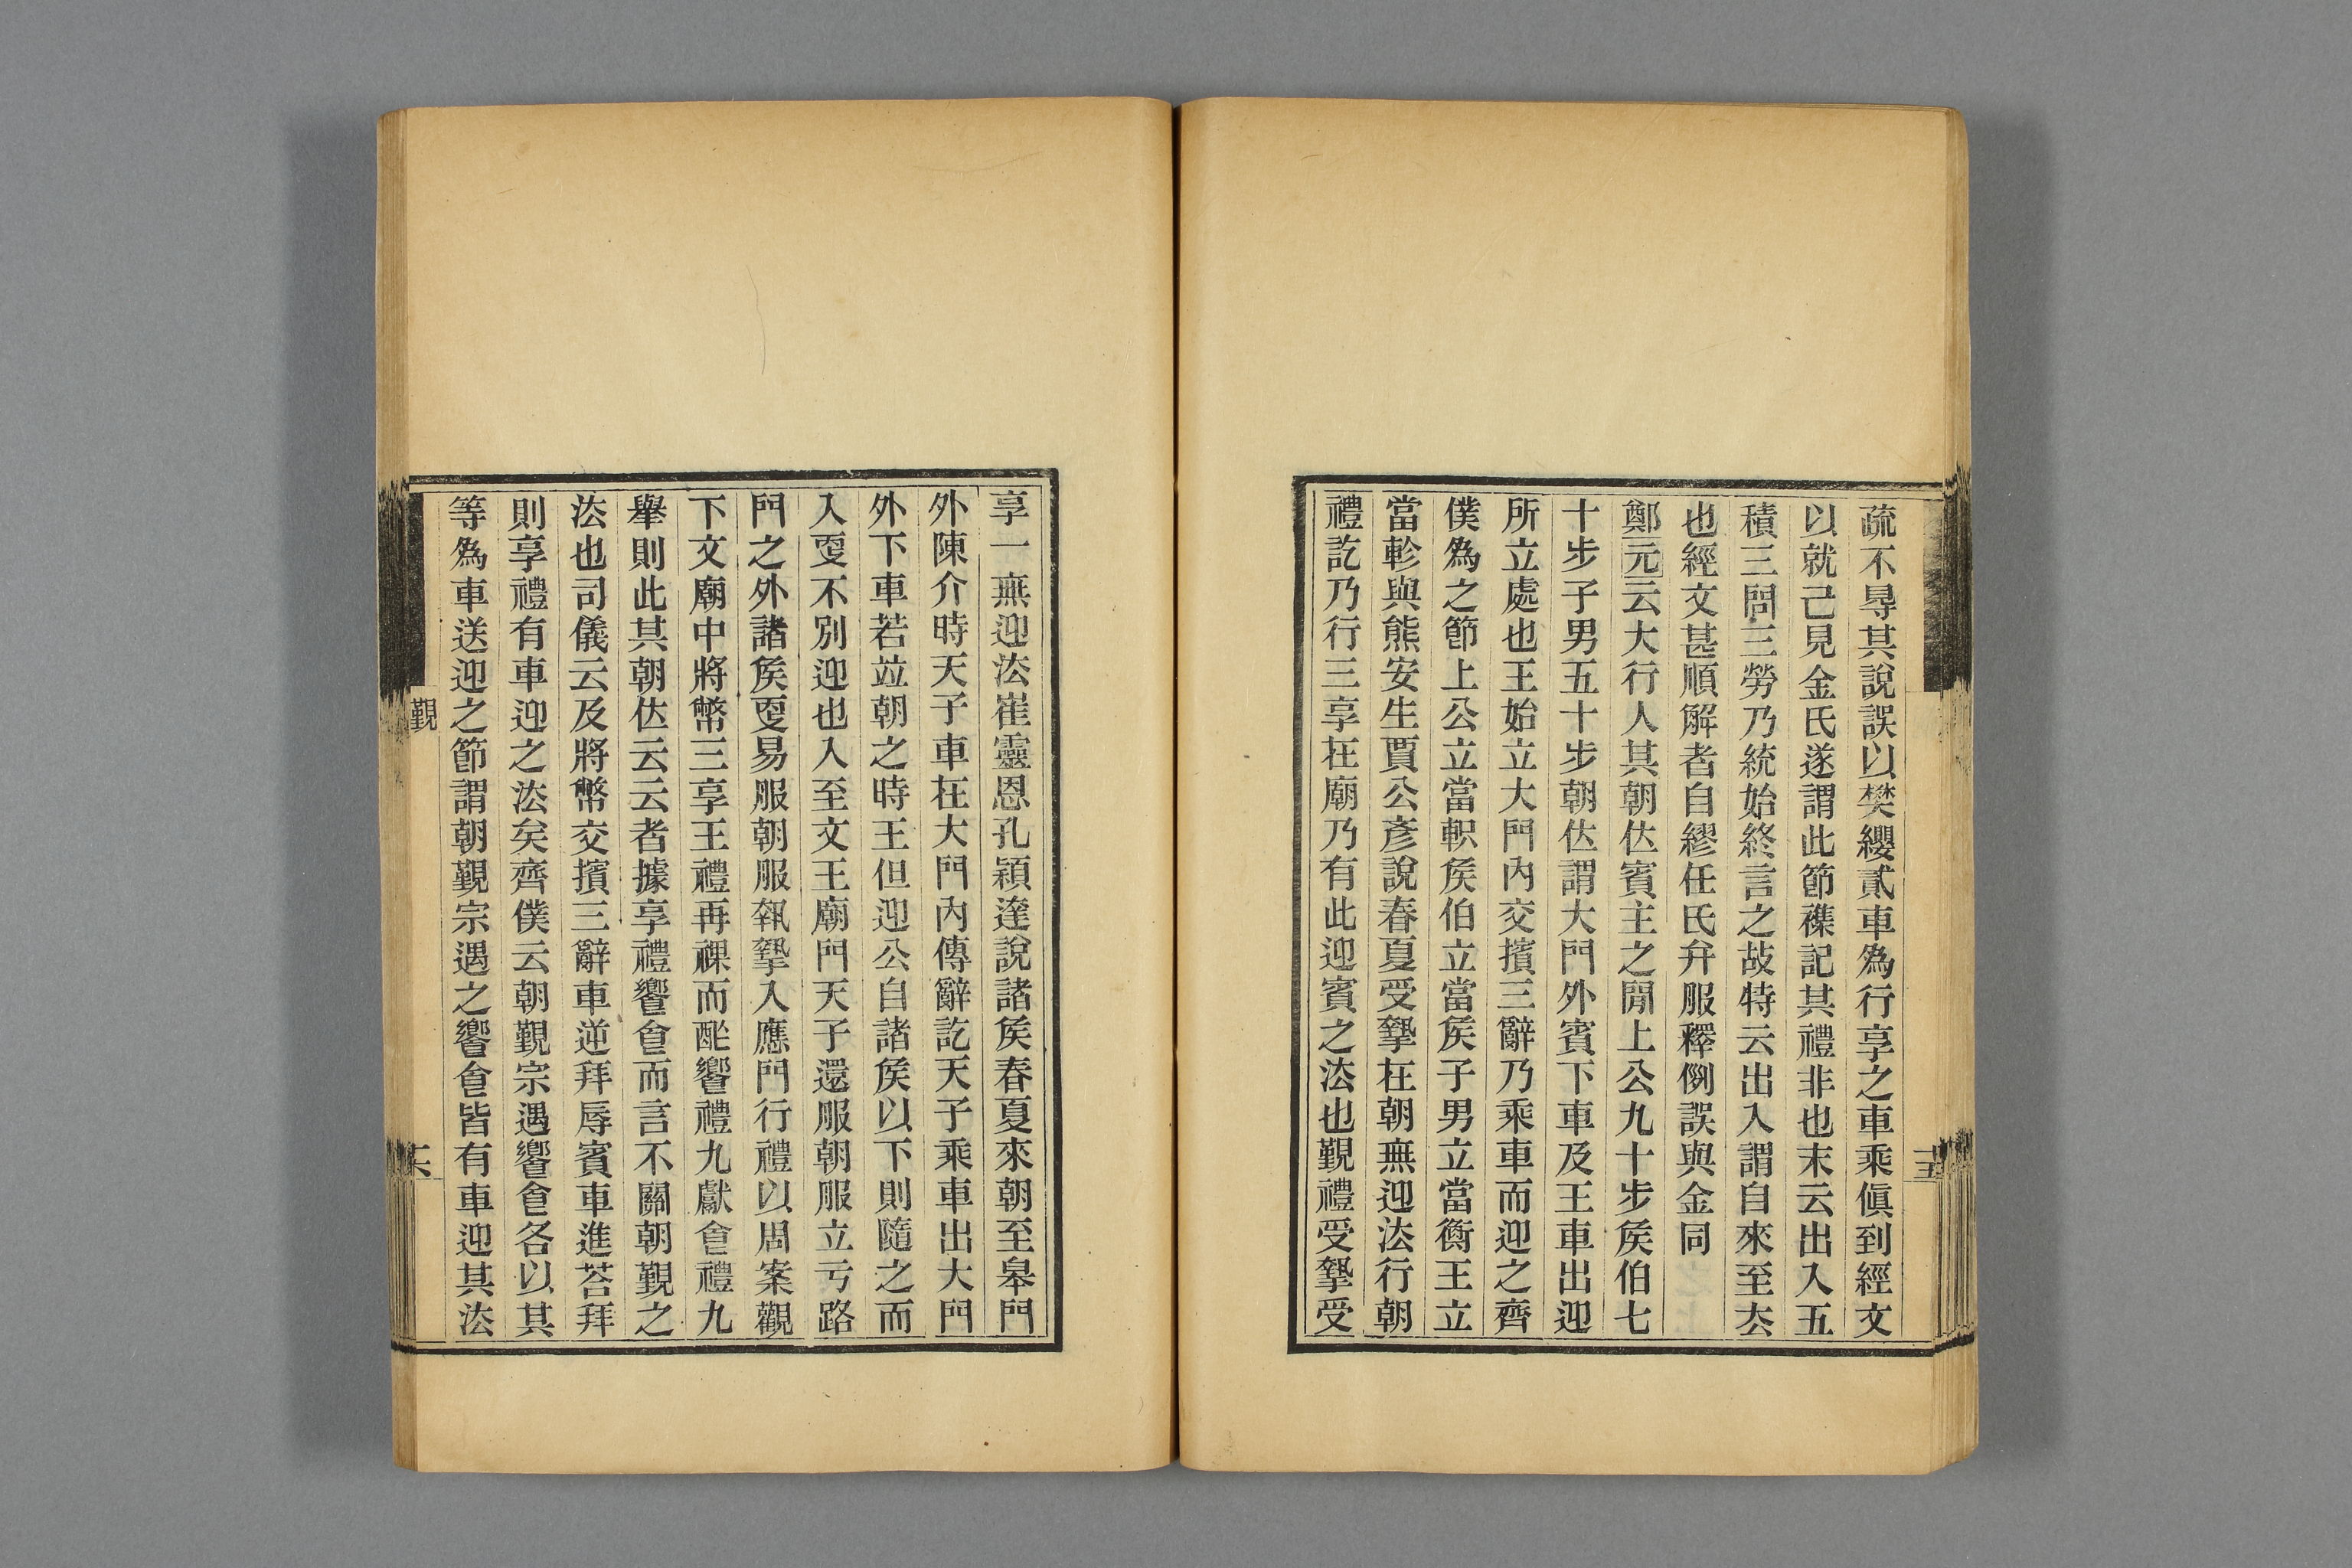 疏不㝷其說誤以樊纓貳車爲行享之車乘傎到經文
以就己見金氏遂謂此節襍記其禮非也末云出入五
積三問三勞乃統始終言之故特云出入謂自來至厺
也經文甚順解者自繆任氏弁服釋例誤與金同
鄭元云大行人其朝位賓主之閒上公九十步矦伯七
十步子男五十步朝位謂大門外賓下車及王車出迎
所立處也王始立大門內交擯三辭乃乘車而迎之齊
僕爲之節上公立當軹矦伯立當矦子男立當衡王立
當軫與熊安生賈公彥說春夏受摯在朝無迎法行朝
禮訖乃行三享在廟乃有此迎賓之法也覲禮受摯受
享一無迎法崔靈恩孔穎達說諸矦春夏來朝至皋門
外陳介時天子車在大門內傳辭訖天子乘車出大門
外下車若竝朝之時王但迎公自諸矦以下則隨之而
入㪅不別迎也入至文王廟門天子還服朝服立于路
門之外諸矦㪅易服朝服執摯入應門行禮以周案觀
下文廟中將幣三享王禮再祼而酢饗禮九獻食禮九
舉則此其朝位云云者據享禮饗食而言不關朝覲之
法也司儀云及將幣交擯三辭車逆拜辱賓車進荅拜
則享禮有車迎之法矣齊僕云朝覲宗遇饗食各以其
等爲車送迎之節謂朝覲宗遇之饗食皆有車迎其法